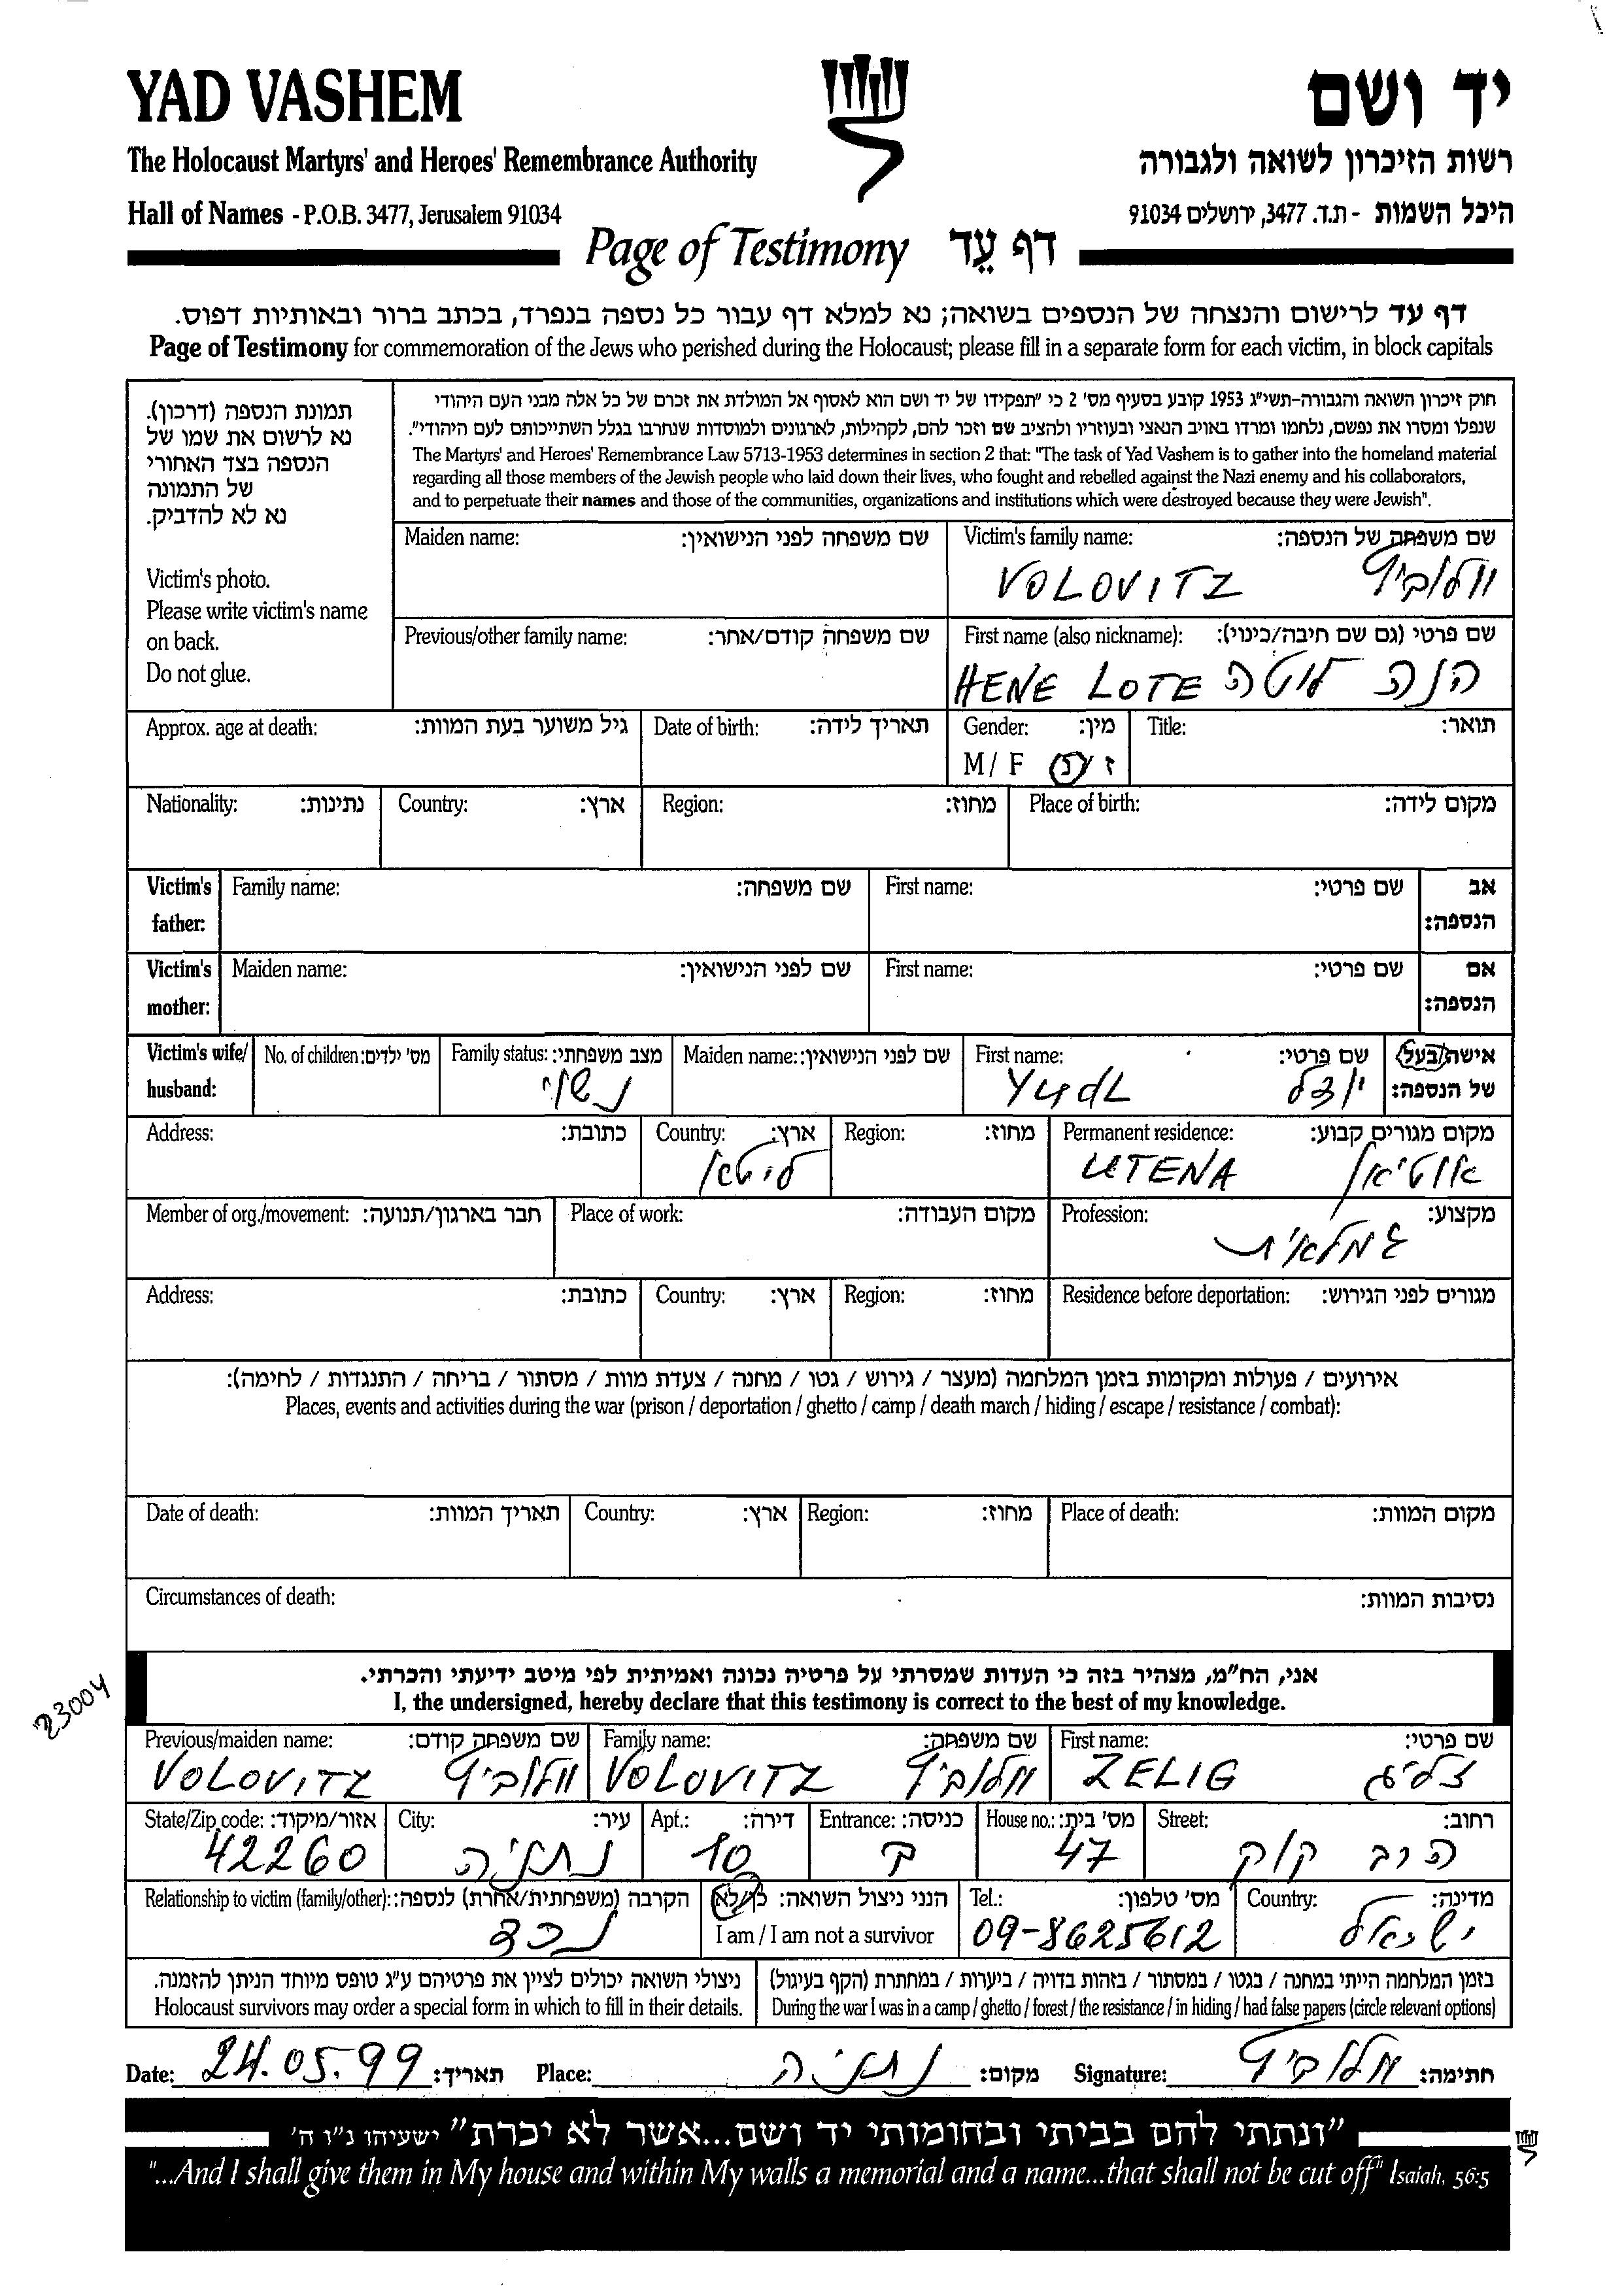 YAD VASHEM
יד ושם
The Holocaust Martyrs' and Heroes' Remembrance Authority
רשות הזיכרון לשואה ולגבורה
Hall of Names - P.O.B. 3477, Jerusalem 91034
היכל השמות - ת.ד. 3477, ירושלים 91034
Page of Testimony דף עֵד
דף עד לרישום והנצחה של הנספים בשואה; נא למלא דף עבור כל נספה בנפרד, בכתב ברור ובאותיות דפוס.
Page of Testimony for commemoration of the Jews who perished during the Holocaust; please fill in a separate form for each victim, in block capitals
תמונת הנספה (דרכון).
נא לרשום את שמו של
הנספה בצד האחורי
של התמונה
נא לא להדביק.
Victim's photo.
Please write victim's name
on back.
Do not glue.
חוק זיכרון השואה והגבורה-תשי"ג 1953 קובע בסעיף מס' 2 כי "תפקידו של יד ושם הוא לאסוף אל המולדת את זכרם של כל אלה מבני העם היהודי
שנפלו ומסרו את נפשם, נלחמו ומרדו באויב הנאצי ובעוזריו ולהציב שם וזכר להם, לקהילות, לארגונים ולמוסדות שנחרבו בגלל השתייכותם לעם היהודי".
The Martyrs' and Heroes' Remembrance Law 5713-1953 determines in section 2 that: "The task of Yad Vashem is to gather into the homeland material
regarding all those members of the Jewish people who laid down their lives, who fought and rebelled against the Nazi enemy and his collaborators,
and to perpetuate their names and those of the communities, organizations and institutions which were destroyed because they were Jewish".
Maiden name: שם משפחה לפני הנישואין:
Victim's family name: שם משפחה של הנספה:
VOLOVITZ וולוביץ
Previous/other family name: שם משפחה קודם/אחר:
First name (also nickname): שם פרטי (גם שם חיבה/כינוי):
HENE LOTE הנה לוטה
Approx. age at death: גיל משוער בעת המוות:
Date of birth: תאריך לידה:
Gender: מין:
M / F ז/נ
Title: תואר:
Nationality: נתינות:
Country: ארץ:
Region: מחוז:
Place of birth: מקום לידה:
Victim's father:
Family name: שם משפחה:
First name: שם פרטי:
אב הנספה:
Victim's mother:
Maiden name: שם לפני הנישואין:
First name: שם פרטי:
אם הנספה:
Victim's wife/ husband:
No. of children: מס' ילדים:
Family status: מצב משפחתי:
נשוי
Maiden name: שם לפני הנישואין:
First name: שם פרטי:
YUdL יודל
אישה/בעל של הנספה:
Address: כתובת:
Country: ארץ:
ליטא
Region: מחוז:
Permanent residence: מקום מגורים קבוע:
UTENA אוטיאן
Member of org./movement: חבר בארגון/תנועה:
Place of work: מקום העבודה:
Profession: מקצוע:
גמלאית
Address: כתובת:
Country: ארץ:
Region: מחוז:
Residence before deportation: מגורים לפני הגירוש:
אירועים / פעולות ומקומות בזמן המלחמה (מעצר / גירוש / גטו / מחנה / צעדת מוות / מסתור / בריחה / התנגדות / לחימה):
Places, events and activities during the war (prison / deportation / ghetto / camp / death march / hiding / escape / resistance / combat):
Date of death: תאריך המוות:
Country: ארץ:
Region: מחוז:
Place of death: מקום המוות:
Circumstances of death: נסיבות המוות:
23004
אני, הח"מ, מצהיר בזה כי העדות שמסרתי על פרטיה נכונה ואמיתית לפי מיטב ידיעתי והכרתי.
I, the undersigned, hereby declare that this testimony is correct to the best of my knowledge.
Previous/maiden name: שם משפחה קודם:
VOLOVITZ וולוביץ
Family name: שם משפחה:
VOLOVITZ וולוביץ
First name: שם פרטי:
ZELIG זליג
State/Zip code: אזור/מיקוד:
42260
City: עיר:
נתניה
Apt.: דירה:
10
Entrance: כניסה:
ב
House no.: מס' בית:
47
Street: רחוב:
הרב קוק
Relationship to victim (family/other): הקרבה (משפחתית/אחרת) לנספה:
נכד
הנני ניצול השואה: כן/לא
I am / I am not a survivor
Tel.: מס' טלפון:
09-8625612
Country: מדינה:
ישראל
ניצולי השואה יכולים לציין את פרטיהם ע"ג טופס מיוחד הניתן להזמנה.
Holocaust survivors may order a special form in which to fill in their details.
בזמן המלחמה הייתי במחנה / בגטו / במסתור / בזהות בדויה / ביערות / במחתרת (הקף בעיגול)
During the war I was in a camp / ghetto / forest / the resistance / in hiding / had false papers (circle relevant options)
Date: 24.05.99 תאריך: Place: נתניה מקום: Signature: וולוביץ חתימה:
"ונתתי להם בביתי ובחומותי יד ושם...אשר לא יכרת" ישעיהו נ"ו ה'
"...And I shall give them in My house and within My walls a memorial and a name...that shall not be cut off" Isaiah, 56:5